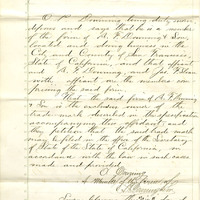 O. F. Downing being duly sworn
deposes and says that he is a member
of the firm of R. F. Downing & Son,
located and doing business in the
City and County of San Francisco
State of California, and that affiant
and R. F. Downing, and
with affiant are the members com-
prising the said firm.
That the said firm of R. F. Downing
& Son is the exclusive owner of the
trade-mark described in the specification
accompanying this affidavit; and
they petition that the said trade-mark
may be filed in the office of the Secretary
of State of the State of California, in
accordance with the law in such cases
made and provided.
A Member of the firm of